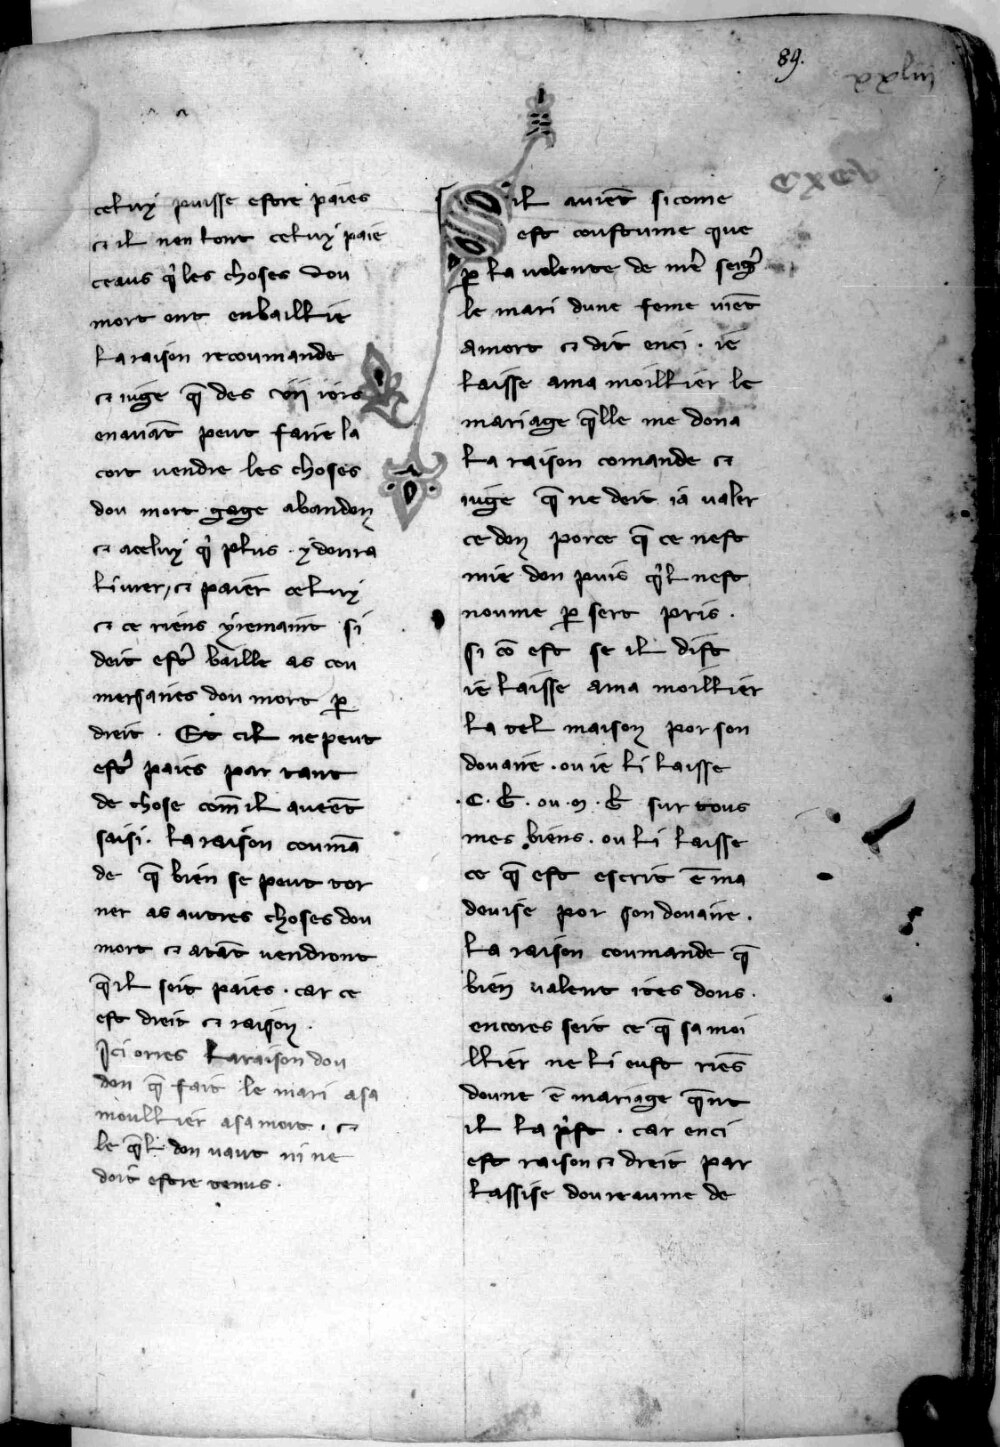 89.
xxliii
cxcv
celuy puisse estre paies
⁊ il non lont celuy paie
ceaus qⁱ les choses dou
mort ont enbaillie
la raison recoumande
⁊ iuge q̄ des vij iors
enauāt peut faire la
cort vendre les choses
dou mort gage abandon
⁊ aceluy qⁱ plus . y donra
liurer, ⁊ paier celuy
⁊ ce riens yremaint si
deit estᵉ baille as cou
mersaires dou mort ꝑ
dreit . Et cil ne peut
estᵉ paies par tant
de chose com̄ il aueēt
saisi . la raison coumā
de q̄ bien se peut tor
ner as autres choses dou
mort ⁊ atāt vendront
q̄il soit paies . car ce
est dreit ⁊ raison .
Ici orres la raison dou
don q̄ fait le mari asa
moullier asa mort . ⁊
le q̄l don vaut ni ne
doit estre tenus .
Sil auiēt sicome
est coustume que
ꝑ la volente de nr̄e seigᵉ
le mari dune feme viēt
amort ⁊ dit enci . ie
laisse ama moillier le
mariage q̄lle me dona
la raison comande ⁊
iuge q̄ ne deit ia valer
ce don porce q̄ ce nest
mie don puis qⁱl nest
noume ꝑ sert pris .
si cō est se il dist
ie laisse ama moillier
la tel maison por son
douaire . ou ie li laisse
. c . b̄ . ou . m . b̄ sur tous
mes biens . ou li laisse
ce q̄ est escrit ē ma
deuise por son douaire .
la raison coumande q̄
bien valent ites dons .
encores seit ce q̄ sa moi
llier ne li eust riēs
doune ē mariage q̄nt
il la pⁱst . car enci
est raison ⁊ dreit par
lassise dou reaume de